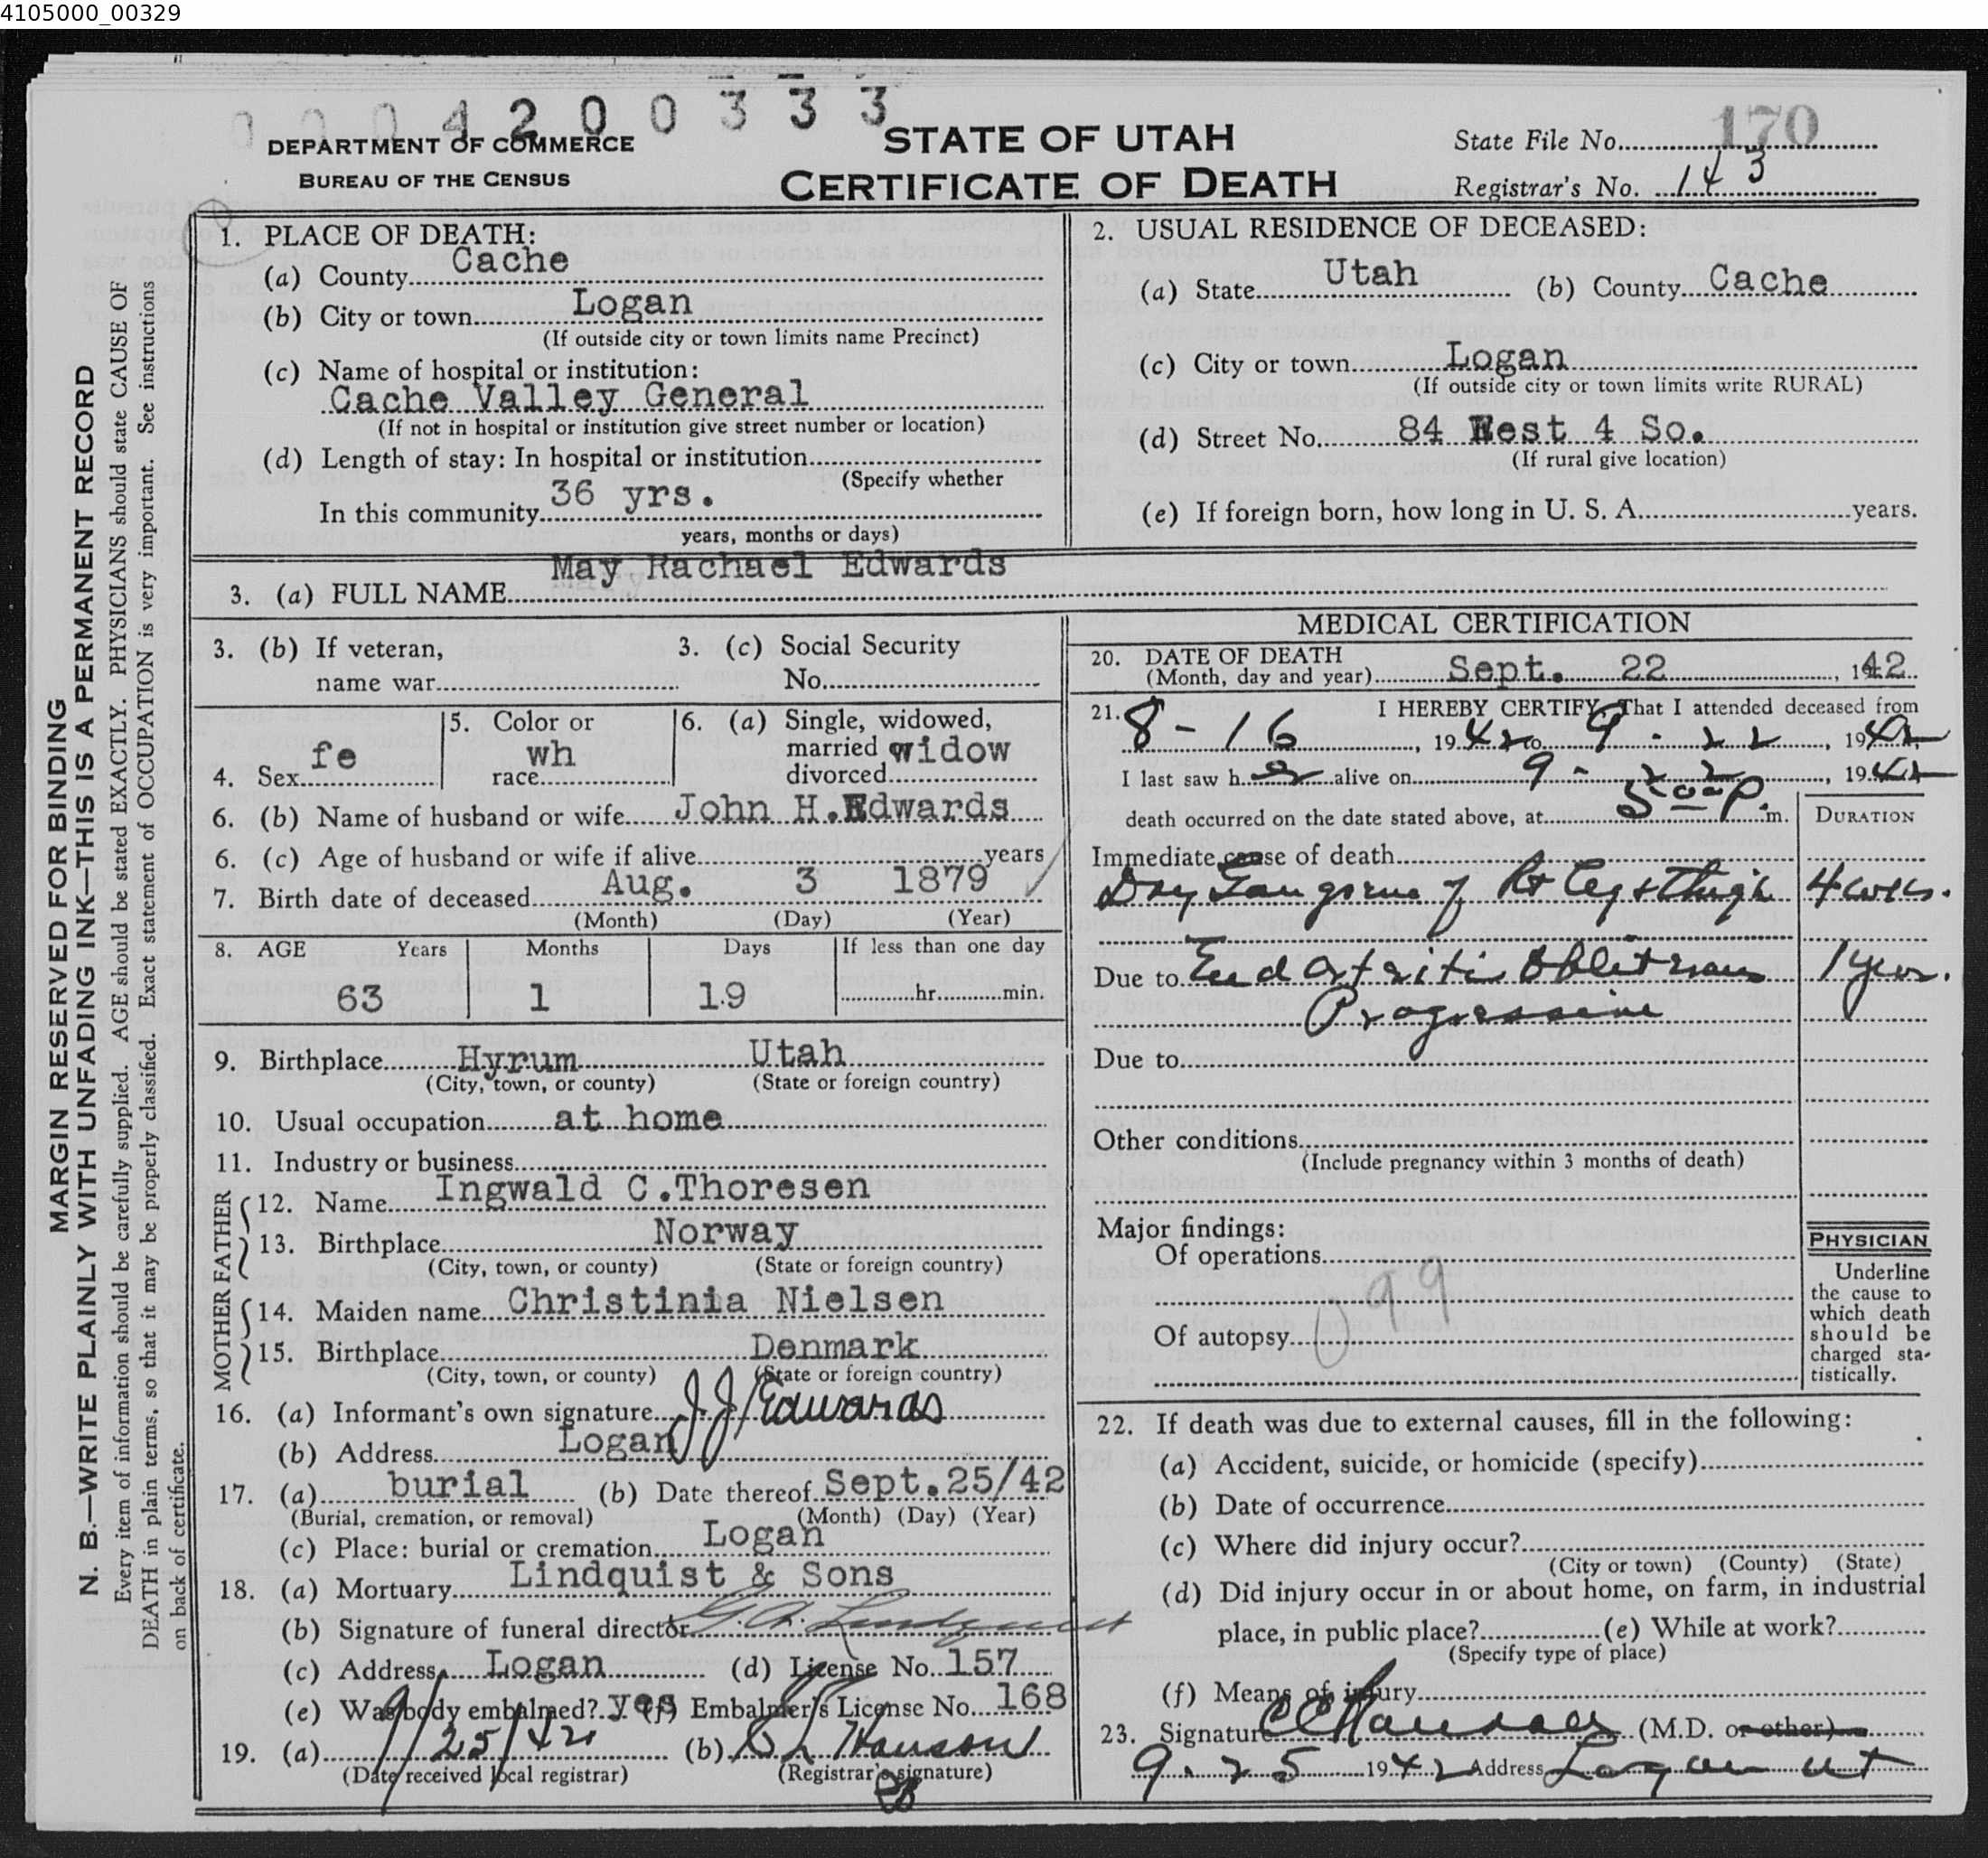 4105000_00329
0004200333
DEPARTMENT OF COMMERCE
BUREAU OF THE CENSUS
STATE OF UTAH
CERTIFICATE OF DEATH
State File No. 170
Registrar's No. 143
MARGIN RESERVED FOR BINDING
N. B.—WRITE PLAINLY WITH UNFADING INK—THIS IS A PERMANENT RECORD
Every item of information should be carefully supplied. AGE should be stated EXACTLY. PHYSICIANS should state CAUSE OF
DEATH in plain terms, so that it may be properly classified. Exact statement of OCCUPATION is very important. See instructions
on back of certificate.
1. PLACE OF DEATH:
(a) County Cache
(b) City or town Logan
(If outside city or town limits name Precinct)
(c) Name of hospital or institution:
Cache Valley General
(If not in hospital or institution give street number or location)
(d) Length of stay: In hospital or institution
(Specify whether
In this community 36 yrs.
years, months or days)
2. USUAL RESIDENCE OF DECEASED:
(a) State Utah (b) County Cache
(c) City or town Logan
(If outside city or town limits write RURAL)
(d) Street No. 84 West 4 So.
(If rural give location)
(e) If foreign born, how long in U. S. A. years.
3. (a) FULL NAME May Rachael Edwards
3. (b) If veteran, 3. (c) Social Security
name war No.
4. Sex fe 5. Color or race wh 6. (a) Single, widowed, married divorced widow
6. (b) Name of husband or wife John H.Edwards
6. (c) Age of husband or wife if alive years
7. Birth date of deceased Aug. 3 1879
(Month) (Day) (Year)
8. AGE Years Months Days If less than one day
63 1 19 hr. min.
9. Birthplace Hyrum Utah
(City, town, or county) (State or foreign country)
10. Usual occupation at home
11. Industry or business
FATHER
12. Name Ingwald C.Thoresen
13. Birthplace Norway
(City, town, or county) (State or foreign country)
MOTHER
14. Maiden name Christinia Nielsen
15. Birthplace Denmark
(City, town, or county) (State or foreign country)
16. (a) Informant's own signature J J Edwards
(b) Address Logan
17. (a) burial (b) Date thereof Sept.25/42
(Burial, cremation, or removal) (Month) (Day) (Year)
(c) Place: burial or cremation Logan
18. (a) Mortuary Lindquist & Sons
(b) Signature of funeral director G.A. Lindquist
(c) Address Logan (d) License No. 157
(e) Was body embalmed? yes (f) Embalmer's License No. 168
19. (a) 9/25/42 (b) Hanson
(Date received local registrar) (Registrar's signature)
MEDICAL CERTIFICATION
20. DATE OF DEATH
(Month, day and year) Sept. 22, 1942
21. I HEREBY CERTIFY, That I attended deceased from
8-16, 1942 to 9-22, 1942
I last saw her alive on 9-22, 1942
death occurred on the date stated above, at 5:00 P. m.
DURATION
Immediate cause of death
Dry Gangrene of Rt Leg & Thigh 4 wks.
Due to Endarteritis Obliterans 1 year.
Progressive
Due to
Other conditions
(Include pregnancy within 3 months of death)
Major findings:
Of operations
099
Of autopsy
PHYSICIAN
Underline
the cause to
which death
should be
charged sta-
tistically.
22. If death was due to external causes, fill in the following:
(a) Accident, suicide, or homicide (specify)
(b) Date of occurrence
(c) Where did injury occur?
(City or town) (County) (State)
(d) Did injury occur in or about home, on farm, in industrial
place, in public place? (e) While at work?
(Specify type of place)
(f) Means of injury
23. Signature (M.D. or other)
9.25 1942 Address Logan Ut